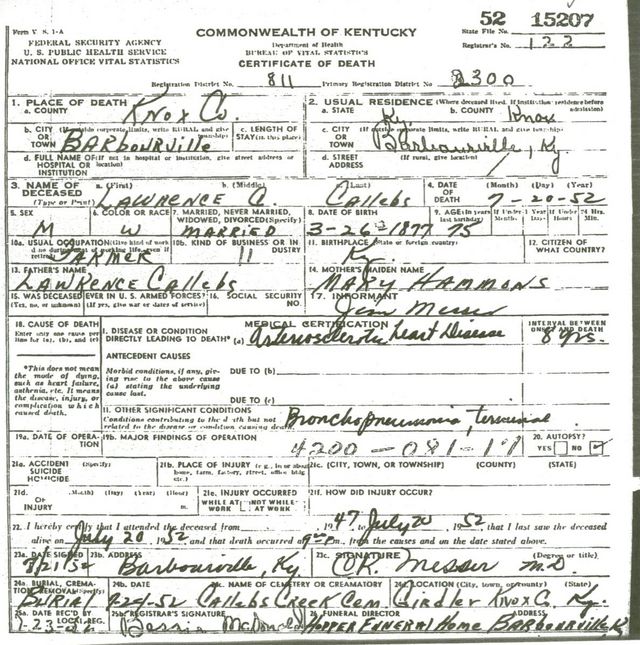 Form V. S. 1-A
52 15207
State File No.
COMMONWEALTH OF KENTUCKY
FEDERAL SECURITY AGENCY
U. S. PUBLIC HEALTH SERVICE
NATIONAL OFFICE VITAL STATISTICS
Department of Health
BUREAU OF VITAL STATISTICS
CERTIFICATE OF DEATH
Registrar's No. 122
Registration District No. 811 Primary Registration District No. 2300
1. PLACE OF DEATH
a. COUNTY Knox Co.
2. USUAL RESIDENCE (Where deceased lived. If institution: residence before admission)
a. STATE Ky. b. COUNTY Knox
b. CITY (If outside corporate limits, write RURAL and give township)
OR TOWN Barbourville
c. LENGTH OF STAY (in this place)
c. CITY (If outside corporate limits, write RURAL and give township)
OR TOWN Barbourville, Ky
d. FULL NAME OF (If not in hospital or institution, give street address or location)
HOSPITAL OR INSTITUTION
d. STREET ADDRESS (If rural, give location)
3. NAME OF DECEASED (Type or Print)
a. (First) b. (Middle) (Last)
Lawrence C. Callebs
4. DATE OF DEATH (Month) (Day) (Year)
7-20-52
5. SEX M
6. COLOR OR RACE W
7. MARRIED, NEVER MARRIED, WIDOWED, DIVORCED (Specify) Married
8. DATE OF BIRTH 3-26-1877
9. AGE (in years last birthday) 75
If Under 1 Year Months Days
If Under 24 Hrs. Hours Min.
10a. USUAL OCCUPATION (Give kind of work done during most of working life, even if retired) Farmer
10b. KIND OF BUSINESS OR INDUSTRY 11
11. BIRTHPLACE (State or foreign country) Ky.
12. CITIZEN OF WHAT COUNTRY?
13. FATHER'S NAME
Lawrence Callebs
14. MOTHER'S MAIDEN NAME
Mary Hammons
15. WAS DECEASED EVER IN U. S. ARMED FORCES?
(Yes, no, or unknown) (If yes, give war or dates of service)
16. SOCIAL SECURITY NO.
17. INFORMANT
Jim Messer
18. CAUSE OF DEATH
Enter only one cause per line for (a), (b), and (c)
MEDICAL CERTIFICATION
INTERVAL BETWEEN ONSET AND DEATH
I. DISEASE OR CONDITION DIRECTLY LEADING TO DEATH* (a) Arteriosclerotic heart Disease 8 yrs.
*This does not mean the mode of dying, such as heart failure, asthenia, etc. It means the disease, injury, or complication which caused death.
ANTECEDENT CAUSES
Morbid conditions, if any, giving rise to the above cause (a) stating the underlying cause last.
DUE TO (b)
DUE TO (c)
II. OTHER SIGNIFICANT CONDITIONS
Conditions contributing to the death but not related to the disease or condition causing death.
Bronchopneumonia, terminal
19a. DATE OF OPERATION
19b. MAJOR FINDINGS OF OPERATION
4200-081-11
20. AUTOPSY?
YES NO
21a. ACCIDENT (Specify)
SUICIDE
HOMICIDE
21b. PLACE OF INJURY (e.g., in or about home, farm, factory, street, office bldg., etc.)
21c. (CITY, TOWN, OR TOWNSHIP) (COUNTY) (STATE)
21d. (Month) (Day) (Year) (Hour)
OF INJURY m.
21e. INJURY OCCURRED
WHILE AT WORK NOT WHILE AT WORK
21f. HOW DID INJURY OCCUR?
22. I hereby certify that I attended the deceased from 1947 to July 20 1952 that I last saw the deceased
alive on July 20 1952 and that death occurred m., from the causes and on the date stated above.
23a. DATE SIGNED 7/21/52
23b. ADDRESS Barbourville, Ky.
23c. SIGNATURE (Degree or title) Messer M.D.
24a. BURIAL, CREMATION, REMOVAL (Specify) Burial
24b. DATE 7-22-52
24c. NAME OF CEMETERY OR CREMATORY Callebs Creek Cem.
24d. LOCATION (City, town, or county) (State) Girdler Knox C. Ky.
25a. DATE REC'D BY LOCAL REG. 7-23-52
25b. REGISTRAR'S SIGNATURE Bessie McDonald
26. FUNERAL DIRECTOR ADDRESS
Hopper Funeral Home Barbourville Ky